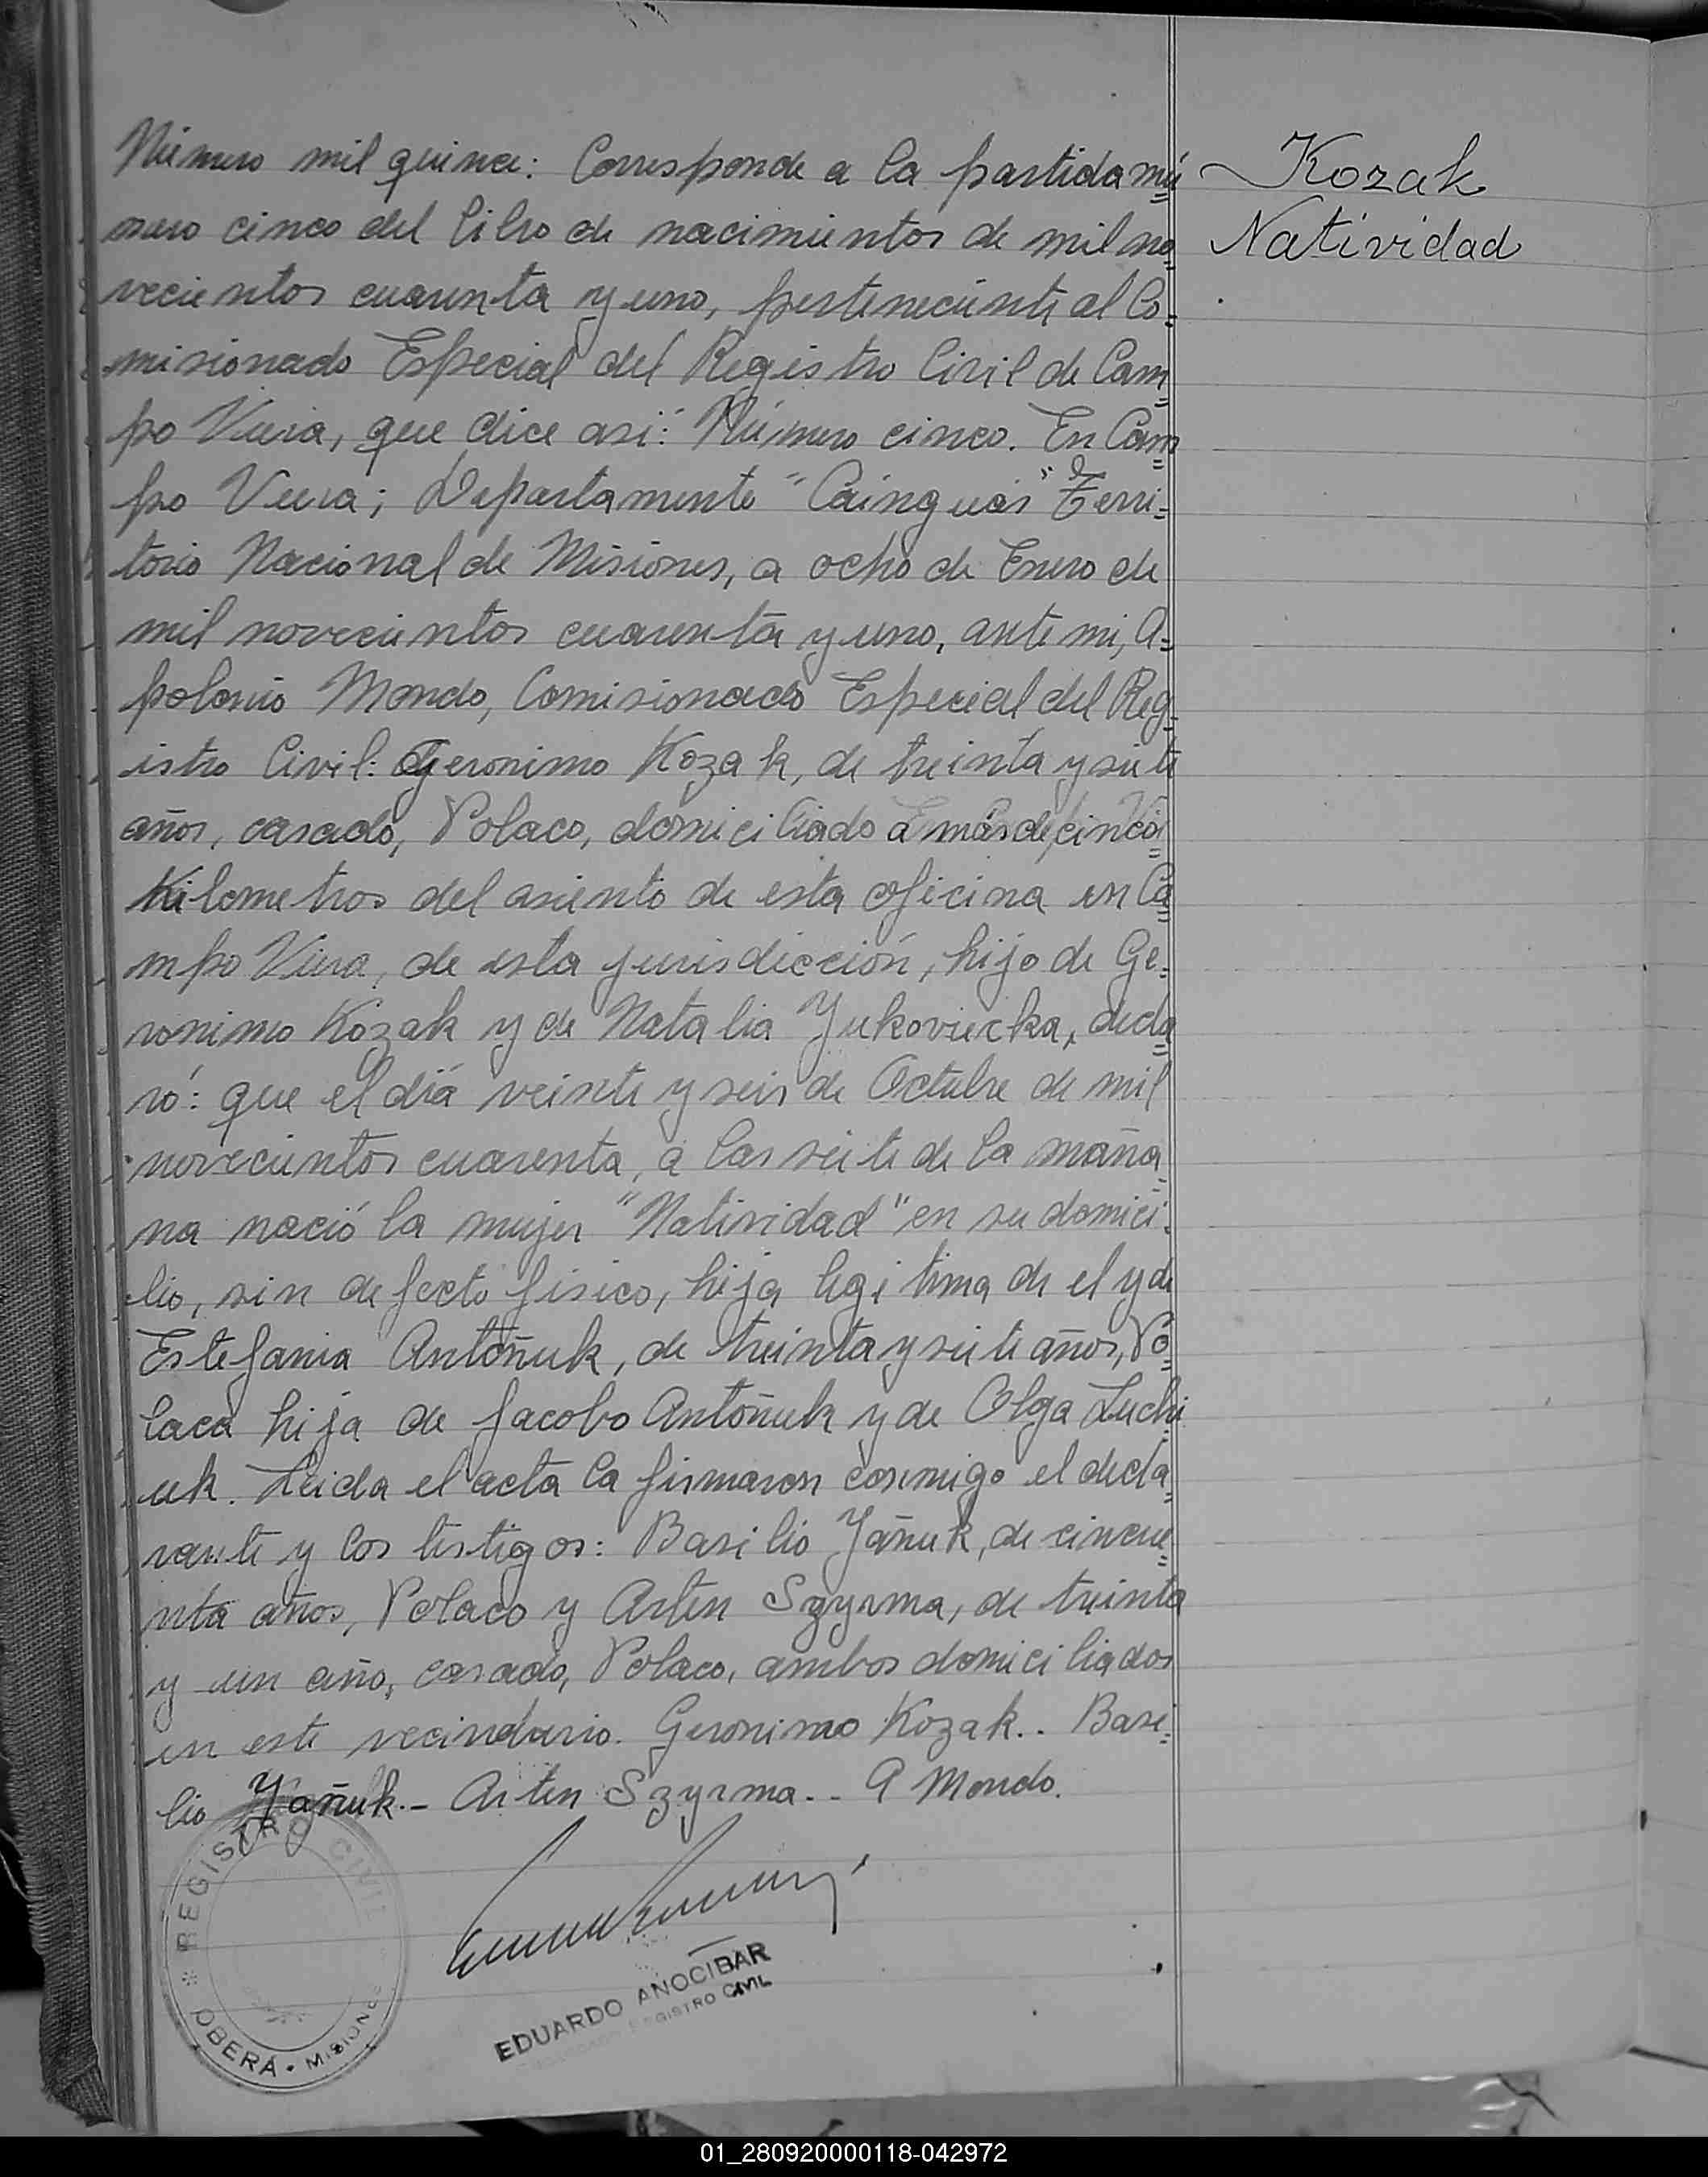 Número mil quince: Corresponde a la partida nú=
mero cinco del libro de nacimientos de mil no=
vecientos cuarenta y uno, perteneciente al Co=
misionado Especial del Registro Civil de Cam=
po Viera, que dice asi: Número cinco. En Cam=
po Viera; Departamento "Cainguás" Terri=
torio Nacional de Misiones, a ocho de Enero de
mil novecientos cuarenta y uno, ante mi, A=
polonio Mondo, Comisionado Especial del Reg=
istro Civil: Geronimo Kozak, de treinta y siete
años, casado, Polaco, domiciliado a más de cinco
Kilometros del asiento de esta oficina en Ca=
mpo Viera, de esta jurisdicción, hijo de Ge=
ronimo Kozak y de Natalia Yukoviecka, decla=
ró: que el día veinte y seis de Octubre de mil
novecientos cuarenta, a las siete de la maña=
na nació la mujer "Natividad" en su domici=
lio, sin defecto fisico, hija legitima de el y de
Estefania Antoñuk, de treinta y siete años, Po=
laca hija de Jacobo Antoñuk y de Olga Luchi=
uk. Leida el acta la firmaron conmigo el decla=
rante y los testigos: Basilio Yañuk, de cincue=
nta años, Polaco y Arten Szyrma, de treinta
y un año, casado, Polaco, ambos domiciliados
en este vecindario. Geronimo Kozak.. Basi=
lio Yañuk.- Arten Szyrma.- A Mondo.
Kozak
Natividad
REGISTRO CIVIL
OBERÁ • MISIONES
EDUARDO ANOCIBAR
REGISTRO CIVIL
01_280920000118-042972